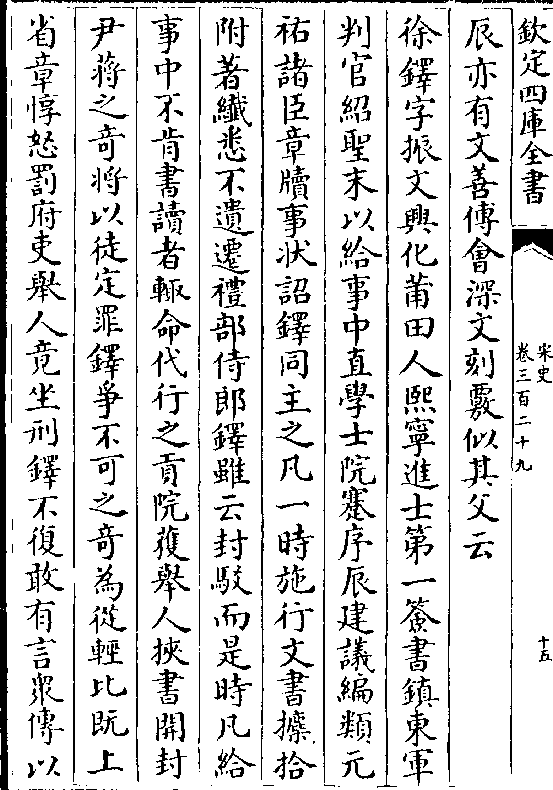 欽定四庫全書
宋史
卷三百二十九
十五
辰亦有文善傅會深文刻覈似其父云
徐鐸字振文興化莆田人熙寧進士第一簽書鎮東軍
判官紹聖末以給事中直學士院蹇序辰建議編類元
祐諸臣章牘事狀詔鐸同主之凡一時施行文書攟拾
附著纖悉不遺遷禮部侍郎鐸雖云封駁而是時凡給
事中不肯書讀者輙命代行之貢院獲舉人挾書開封
尹蔣之奇將以徒定罪鐸爭不可之奇為從輕比既上
省章惇怒罰府吏舉人竟坐刑鐸不復敢有言衆傳以